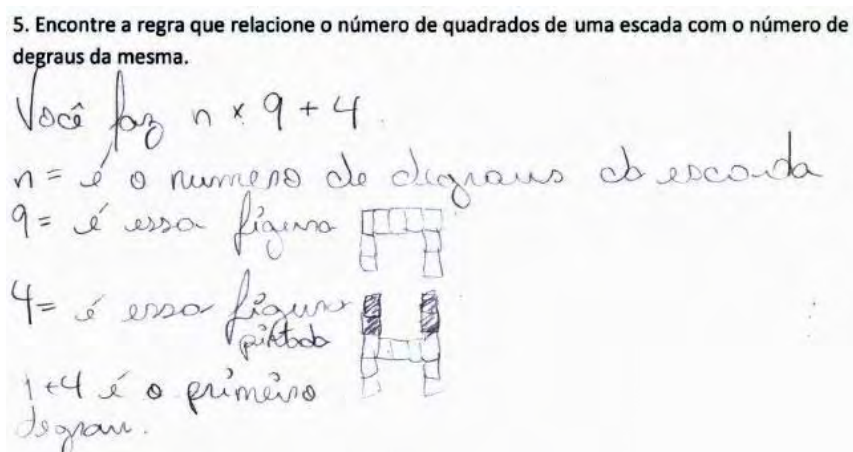 5. Encontre a regra que relacione o número de quadrados de uma escada com o número de
degraus da mesma.
Você faz n x 9 + 4.
n = é o numero de degraus da escada
9 = é essa figura
4 = é essa figura
pintada
1+4 é o primeiro
degrau.